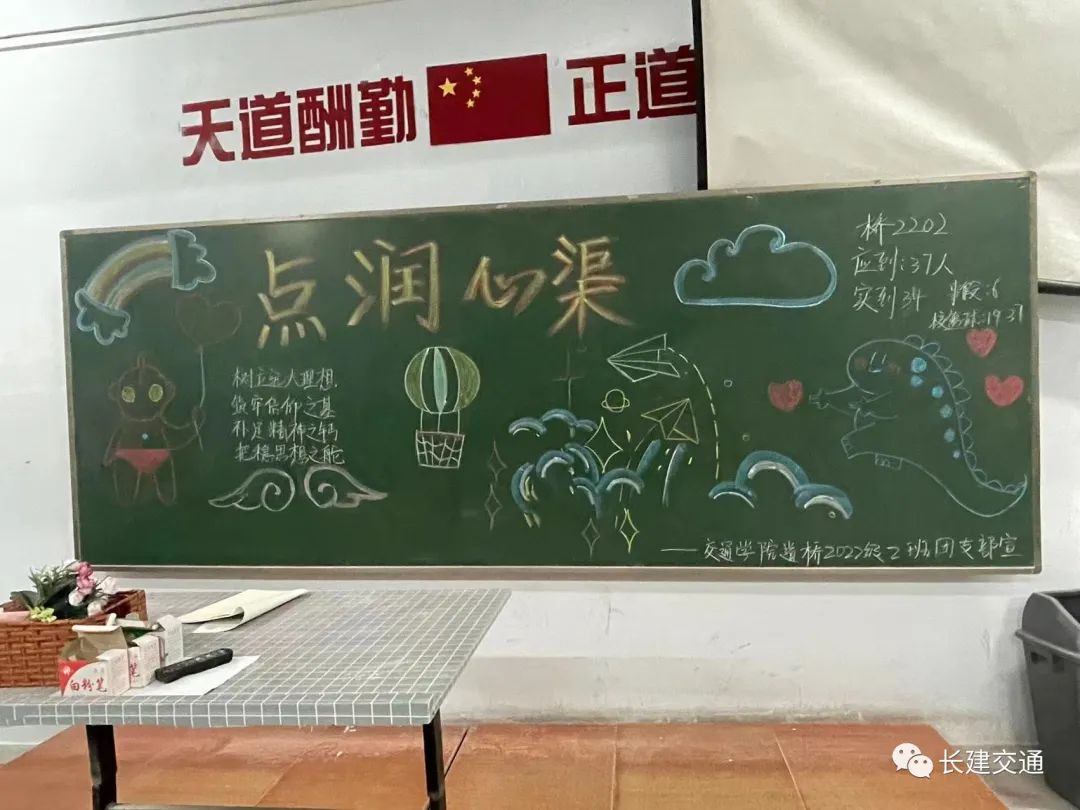 天道酬勤 正道
点润心渠
桥2202
应到:37人
实到34 事假:6
树立远大理想
筑牢信仰之基
补足精神之钙
把稳思想之舵
——交通学院道桥2022级2班团支部宣
白粉笔
长建交通